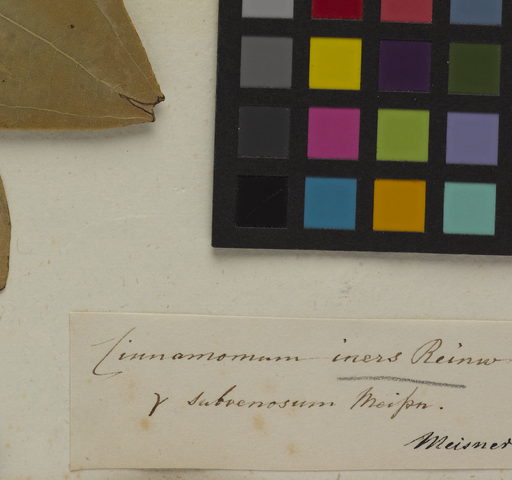 Cinnamomum iners Reinw
γ subvenosum Meißn.
Meisner